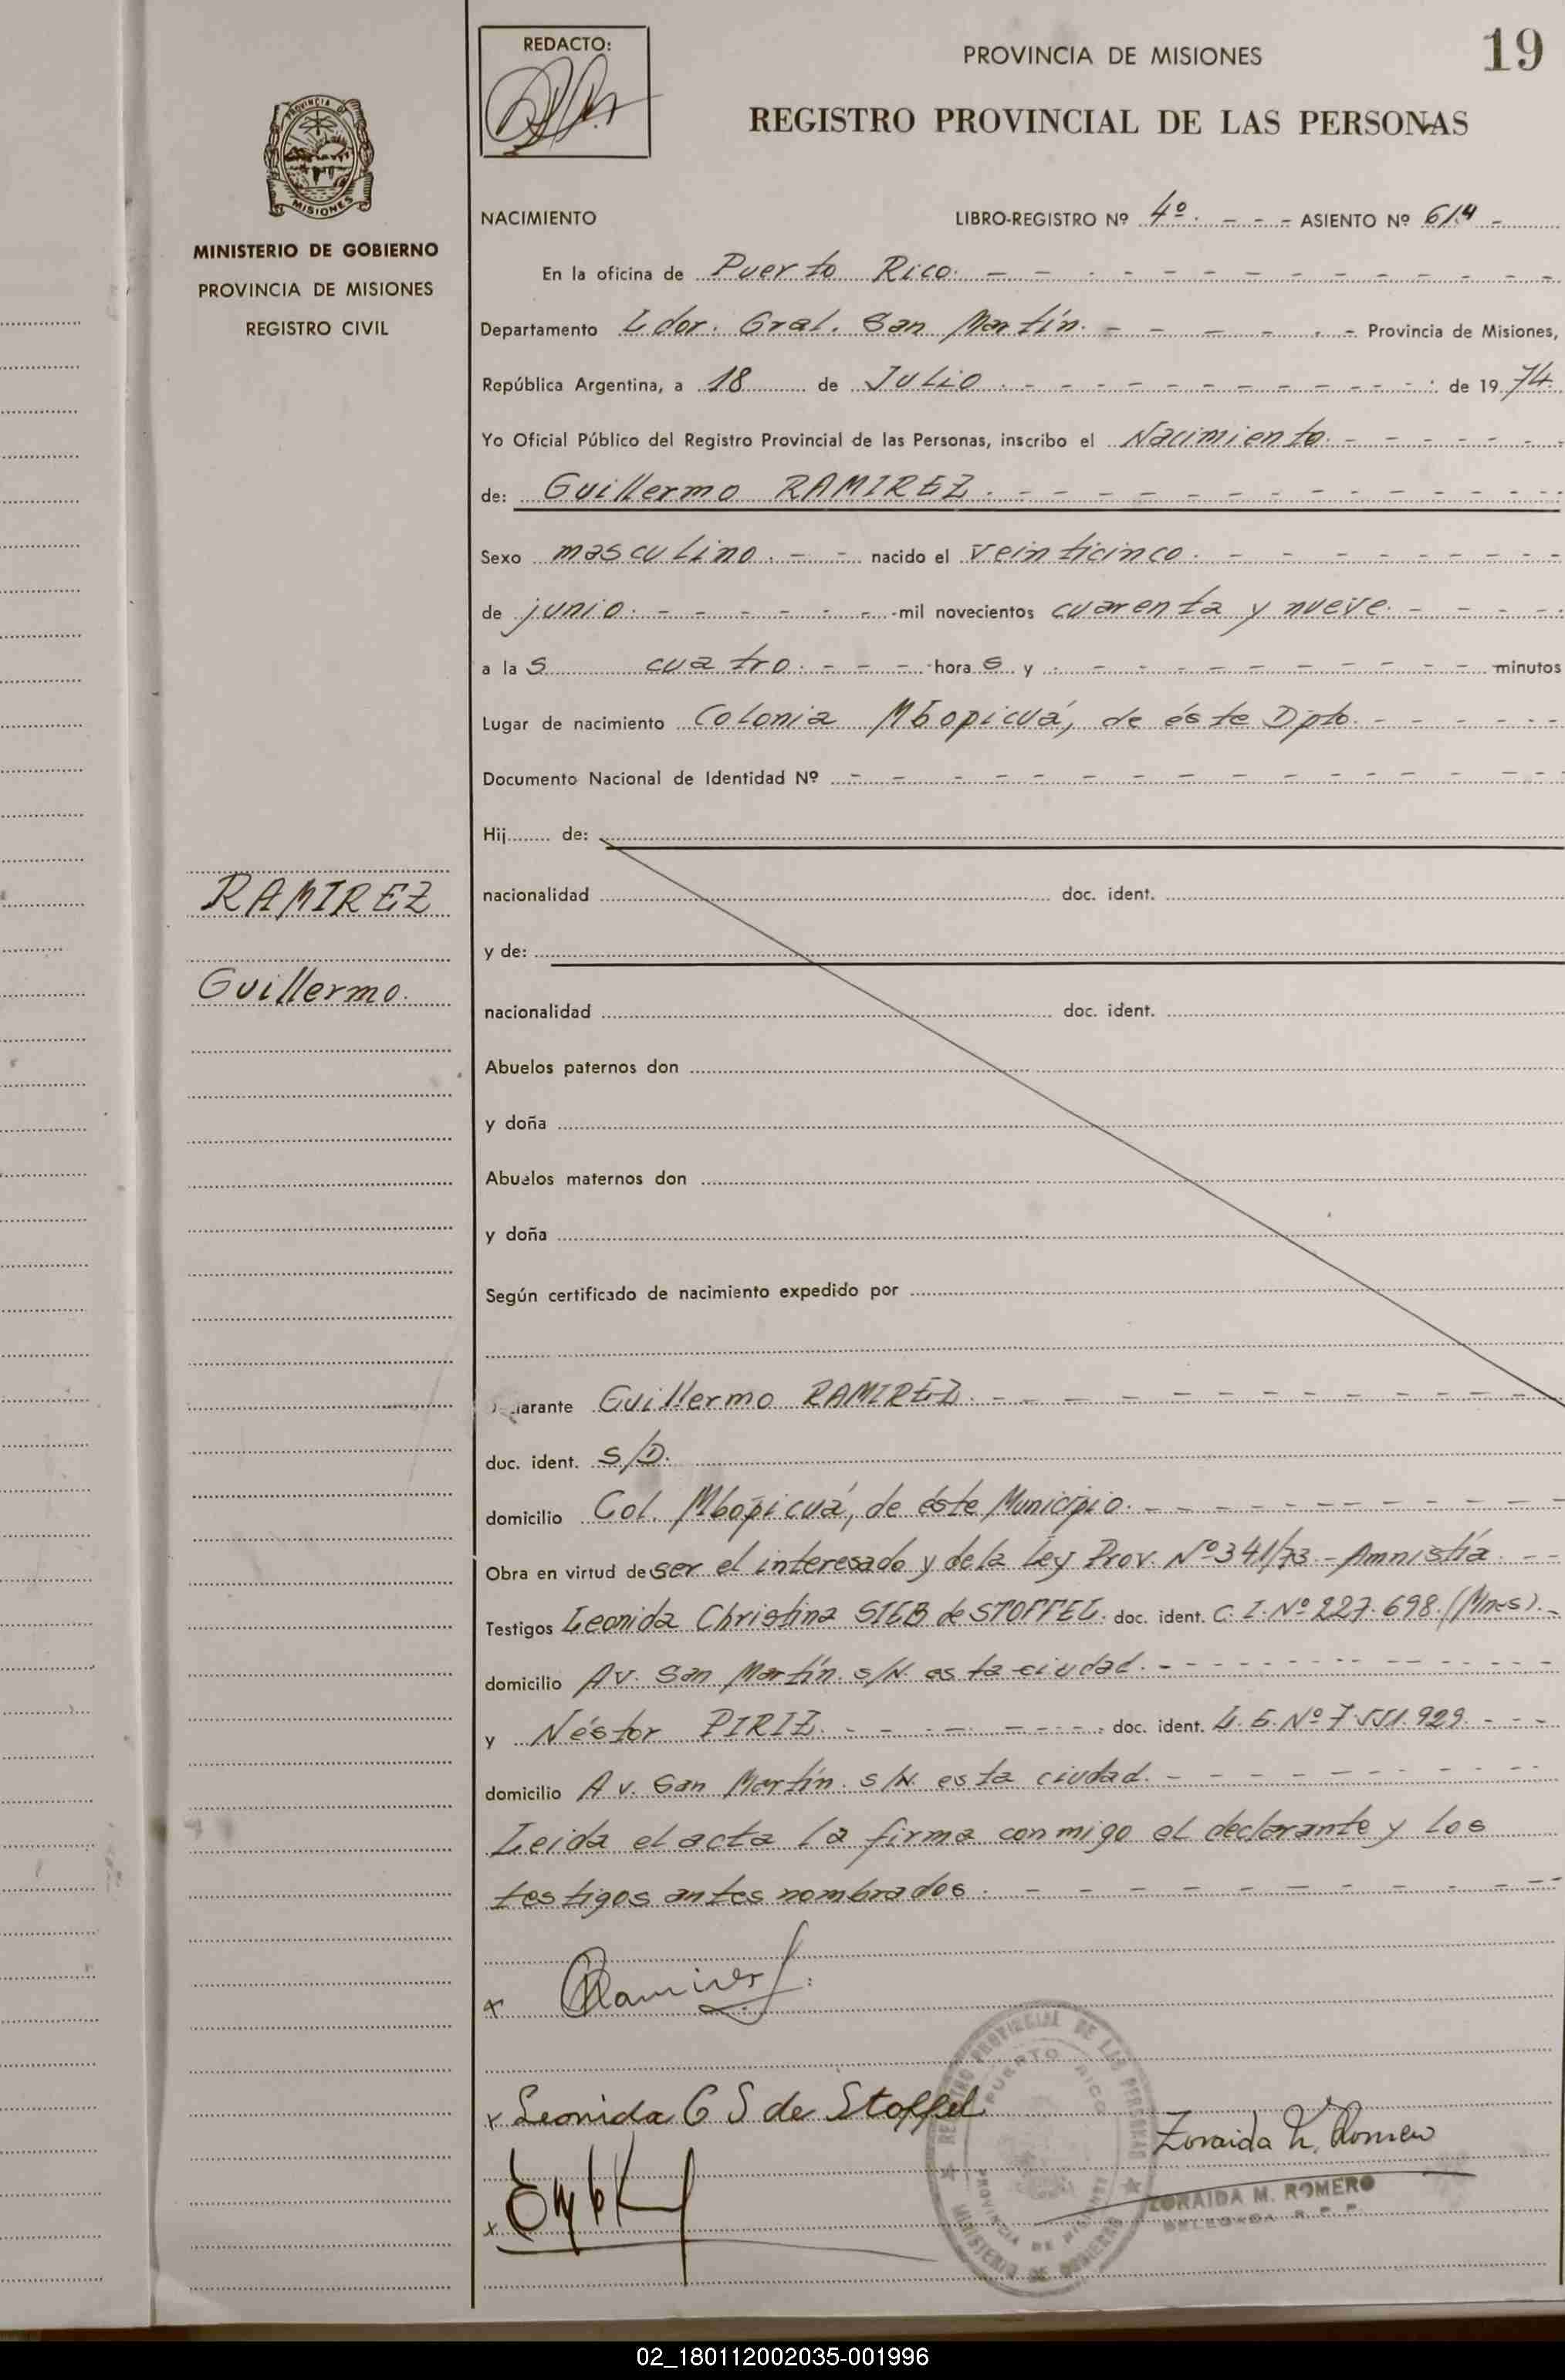 REDACTO:
PROVINCIA DE MISIONES
19
REGISTRO PROVINCIAL DE LAS PERSONAS
PROVINCIA DE
MISIONES
MINISTERIO DE GOBIERNO
PROVINCIA DE MISIONES
REGISTRO CIVIL
RAMIREZ
Guillermo.
NACIMIENTO LIBRO-REGISTRO Nº 4º. - - - ASIENTO Nº 614 -
En la oficina de Puerto Rico. - - - - - - - - - - - -
Departamento Ldor. Gral. San Martín. - - - - - - Provincia de Misiones,
República Argentina, a 18 de Julio. - - - - - - - - - - de 1974.
Yo Oficial Público del Registro Provincial de las Personas, inscribo el Nacimiento. - - - - - -
de: Guillermo RAMIREZ. - - - - - - - - - - - - -
Sexo masculino. - - nacido el veinticinco. - - - - - - - - -
de junio. - - - - - - - mil novecientos cuarenta y nueve. - - - -
a la s cuatro. - - - hora s y - - - - - - - - - - minutos
Lugar de nacimiento Colonia Mbopicuá, de éste Dpto. - - - - -
Documento Nacional de Identidad Nº - - - - - - - - - - - - - - -
Hij de:
nacionalidad doc. ident.
y de:
nacionalidad doc. ident.
Abuelos paternos don
y doña
Abuelos maternos don
y doña
Según certificado de nacimiento expedido por
arante Guillermo RAMIREZ. - - - - - - - - - - - -
doc. ident. S/D.
domicilio Col. Mbopicuá, de éste Municipio. - - - - - - - - - -
Obra en virtud de ser el interesado y de la Ley Prov. Nº 341/73 - Amnistía. - -
Testigos Leonida Christina SIEB de STOFFEL. doc. ident. C. I. Nº 227.698. (Mnes). -
domicilio Av. San Martín. s/N. esta ciudad. - - - - - - - - - -
y Néstor PIRIZ. - - - - - - - doc. ident. L. E. Nº 7.551.929. - - -
domicilio Av. San Martín. s/N. esta ciudad. - - - - - - - - - -
Leida el acta la firma conmigo el declarante y los
testigos antes nombrados. - - - - - - - - - - -
x Ramirez
x Leonida C S de Stoffel
x
REGISTRO PROVINCIAL DE LAS PERSONAS
PUERTO RICO
PROVINCIA DE MISIONES
MINISTERIO DE GOBIERNO
Zoraida M. Romero
ZORAIDA M. ROMERO
DELEGADA R. P. P.
02_180112002035-001996